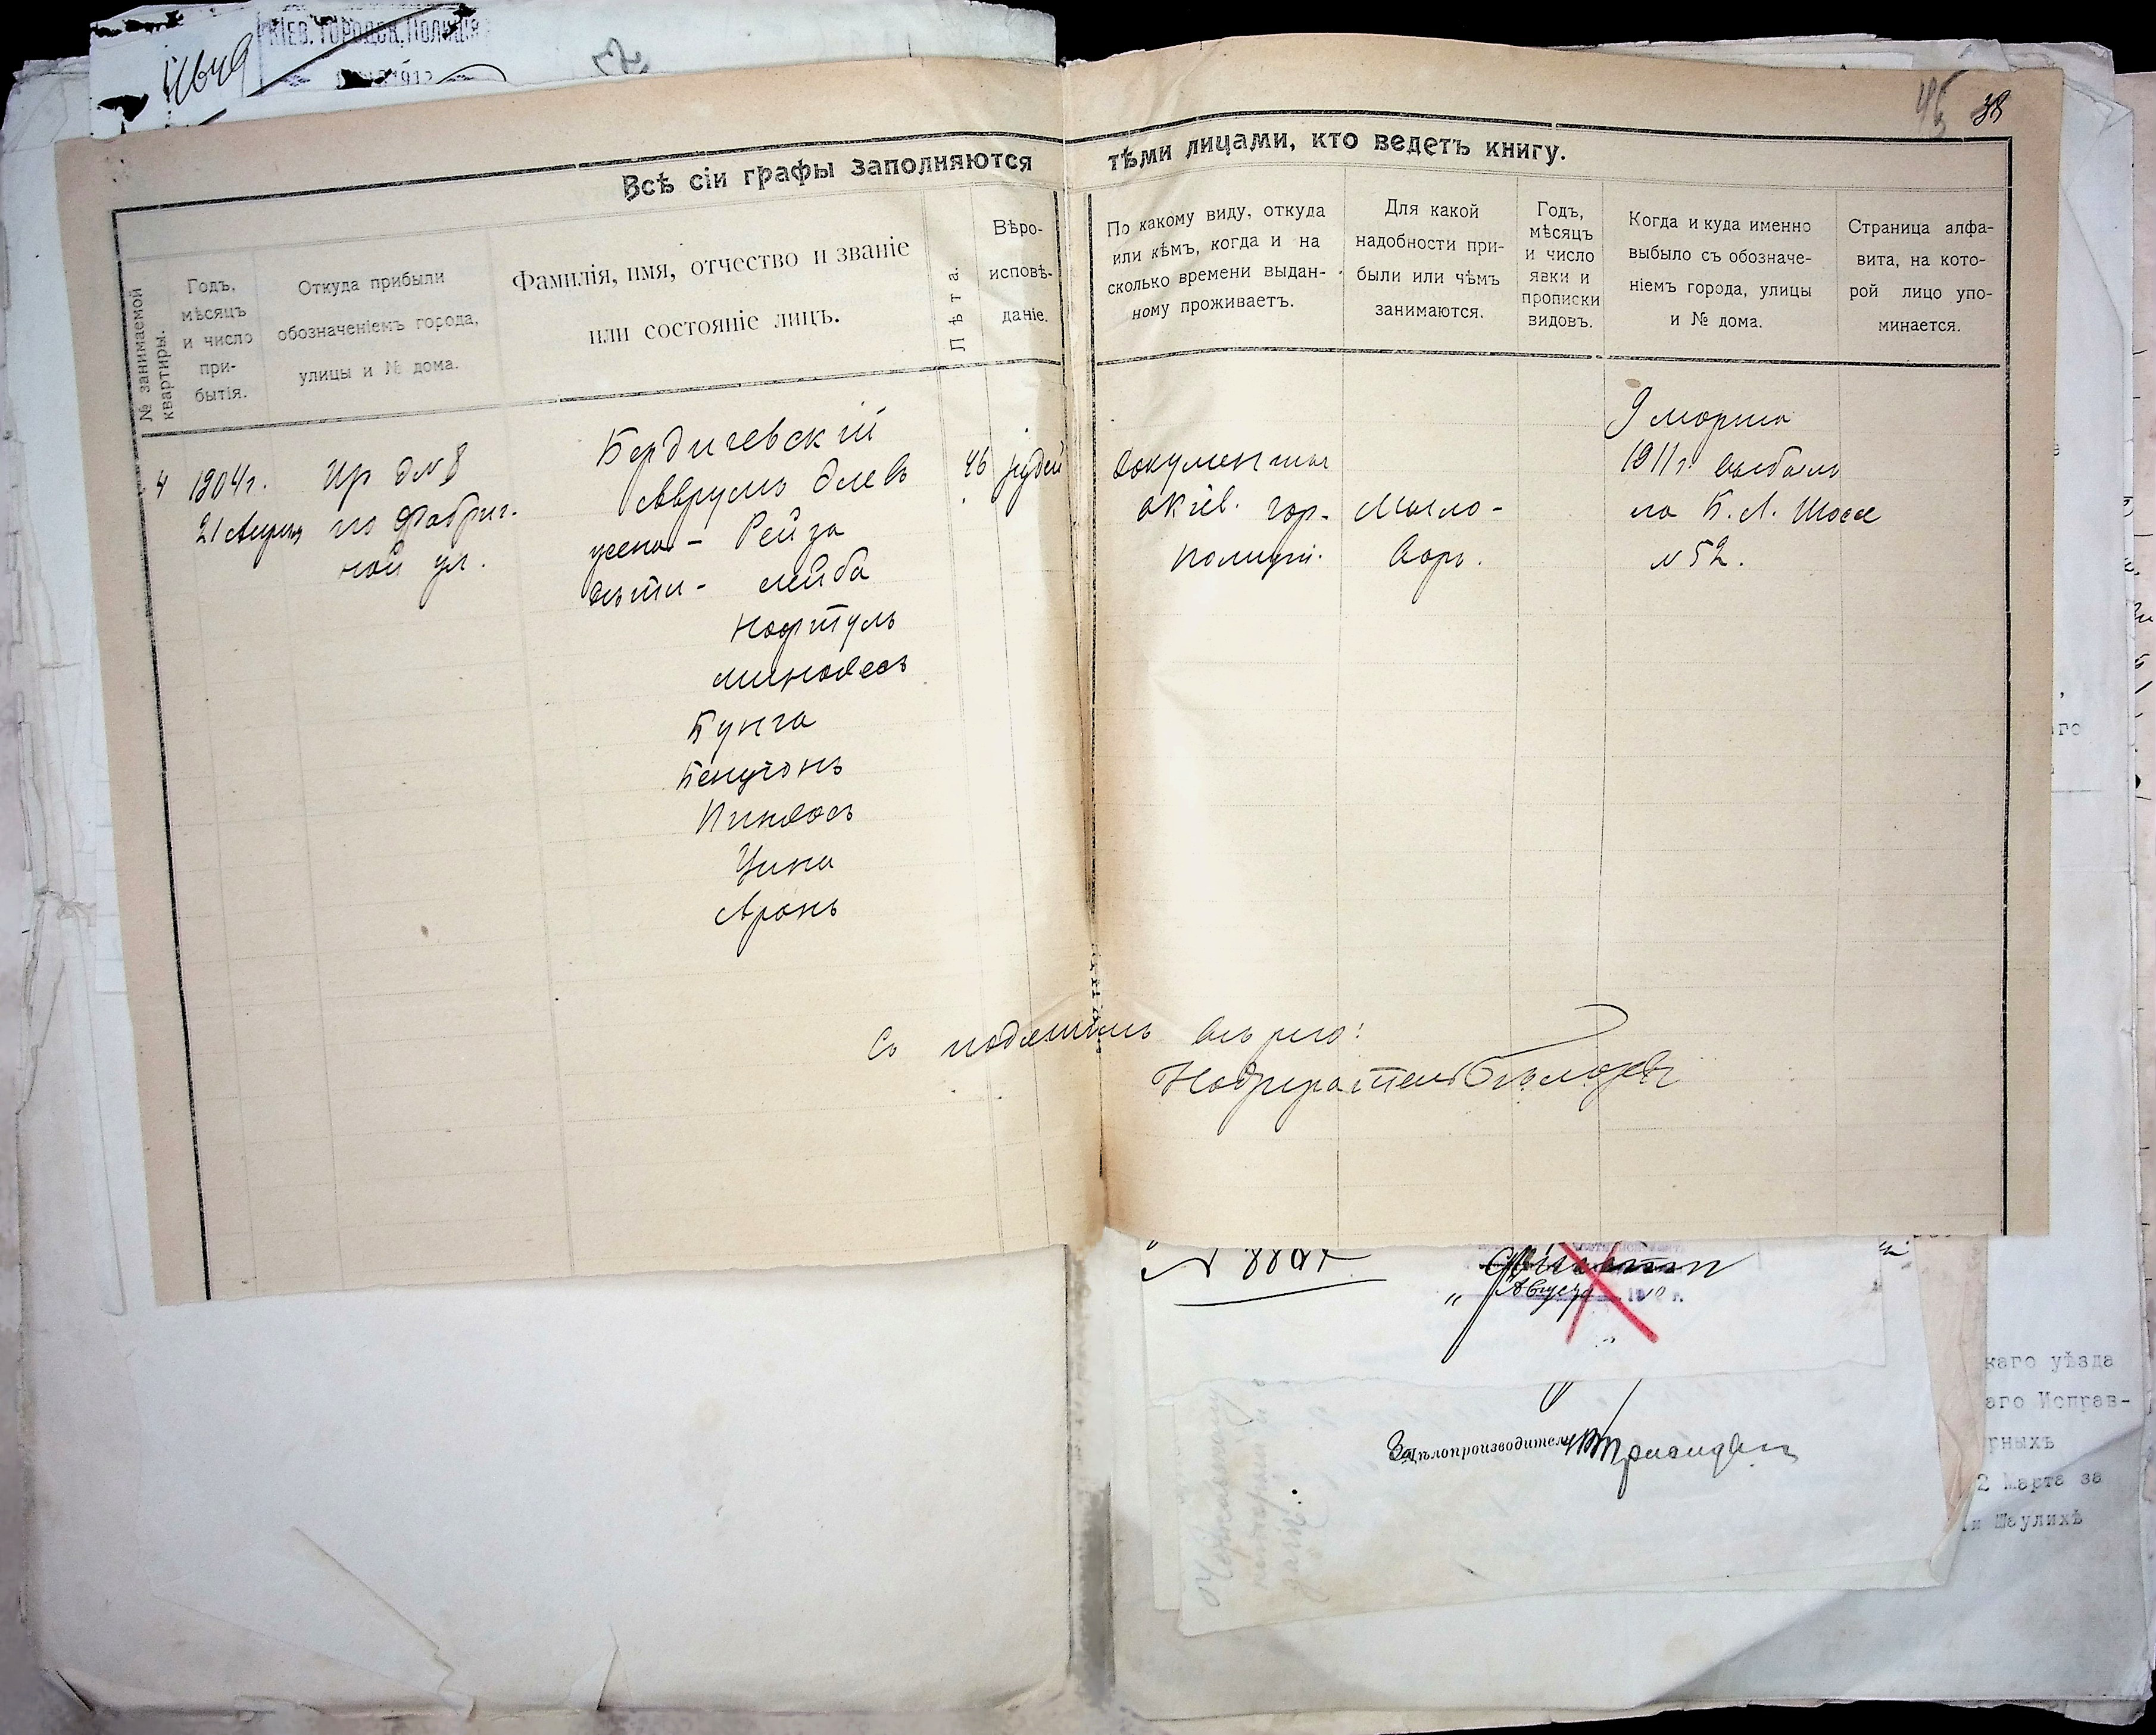 4649
КІЕВ. ГОРОДСК. ПОЛИЦІЯ
38
Всѣ сіи графы заполняются тѣми лицами, кто ведетъ книгу.
№ занимаемой квартиры.
Годъ,
мѣсяцъ
и число
при-
бытія.
Откуда прибыли
обозначеніемъ города,
улицы и № дома.
Фамилія, имя, отчество и званіе
или состояніе лицъ.
Лѣта.
Вѣро-
исповѣ-
даніе.
По какому виду, откуда
или кѣмъ, когда и на
сколько времени выдан-
ному проживаетъ.
Для какой
надобности при-
были или чѣмъ
занимаются.
Годъ,
мѣсяцъ
и число
явки и
прописки
видовъ.
Когда и куда именно
выбыло съ обозначе-
ніемъ города, улицы
и № дома.
Страница алфа-
вита, на кото-
рой лицо упо-
минается.
4
1904 г.
21 Апрѣля
Из д № 8
по Фабрич-
ной ул.
Бердичевскій
Аврумъ
жена - Рейза
дѣти - Лейба
Нафтуль
Бунга
Бенціонъ
Пинхасъ
Цина
Аронъ
46
іудей
Документы
Кіев. гор.
полиціи.
Мыло-
вар.
9 марта
1911 г. выбылъ
по Б. А. Шоссе
№ 52.
Съ подлиннымъ вѣрно:
Надзиратель
Августа
Дѣлопроизводитель
каго уѣзда
аго Исправ-
рныхъ
2 Марта за
и Шаулихѣ